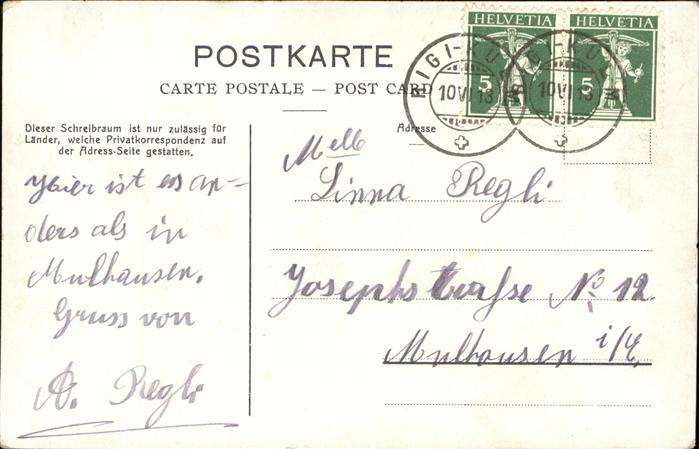 HELVETIA HELVETIA
5 5
RIGI-KU
10 VI 13
10 VI 13
POSTKARTE
CARTE POSTALE — POST CARD
Dieser Schreibraum ist nur zulässig für
Länder, welche Privatkorrespondenz auf
der Adress-Seite gestatten.
Adresse
Hier ist es an-
ders als in
Mulhausen.
Gruss von
A. Regli
Melle
Linna Regli
Josephstrasse No 12
Mulhausen i/E.